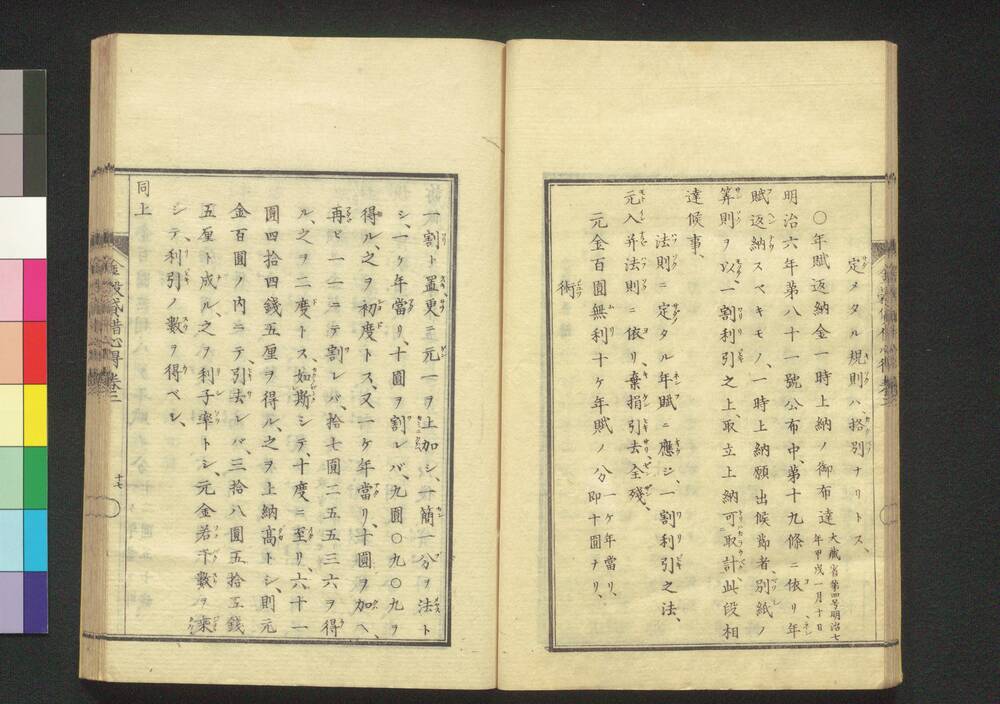 定メタル規則ハ、挌別ナリトス、
〇年賦返納金一時上納ノ御布達 大藏省第四号明治七年甲戌一月十日
明治六年第八十一號公布中、第十九條ニ依リ年
賦返納スベキモノ、一時上納願出候節者、別紙ノ
算則ヲ以、一割利引之上、取立上納可取計、此段相
達候事、
法則ニ定タル年賦ニ應ジ、一割利引之法、
元入并法則ニ依リ、棄捐引去全殘、
元金百圓無利十ケ年賦ノ分 一ケ年當リ、即十圓ナリ、
術
一割ト置更ニ元一ヲ上加シ、一箇一分ヲ法ト
シ、一ケ年當リ、十圓ヲ割レバ、九圓〇九〇九ヲ
得ル、之ヲ初度トス、又一ケ年當リ、十圓ヲ加ヘ、
再ビ一一ニテ割レバ、拾七圓三五五三六ヲ得
ル、之ヲ二度トス、如斯シテ、十度ニ至リ、六十一
圓四拾四錢五厘ヲ得ル、之ヲ上納髙トシ、則元
金百圓ノ内ニテ引去レバ、三拾八圓五拾五錢
五厘ト成ル、之ヲ利子率トシ、元金若干數ヲ乗
シテ、利引ノ數ヲ得ベシ、
同上
金穀貸借心得 卷三
十七